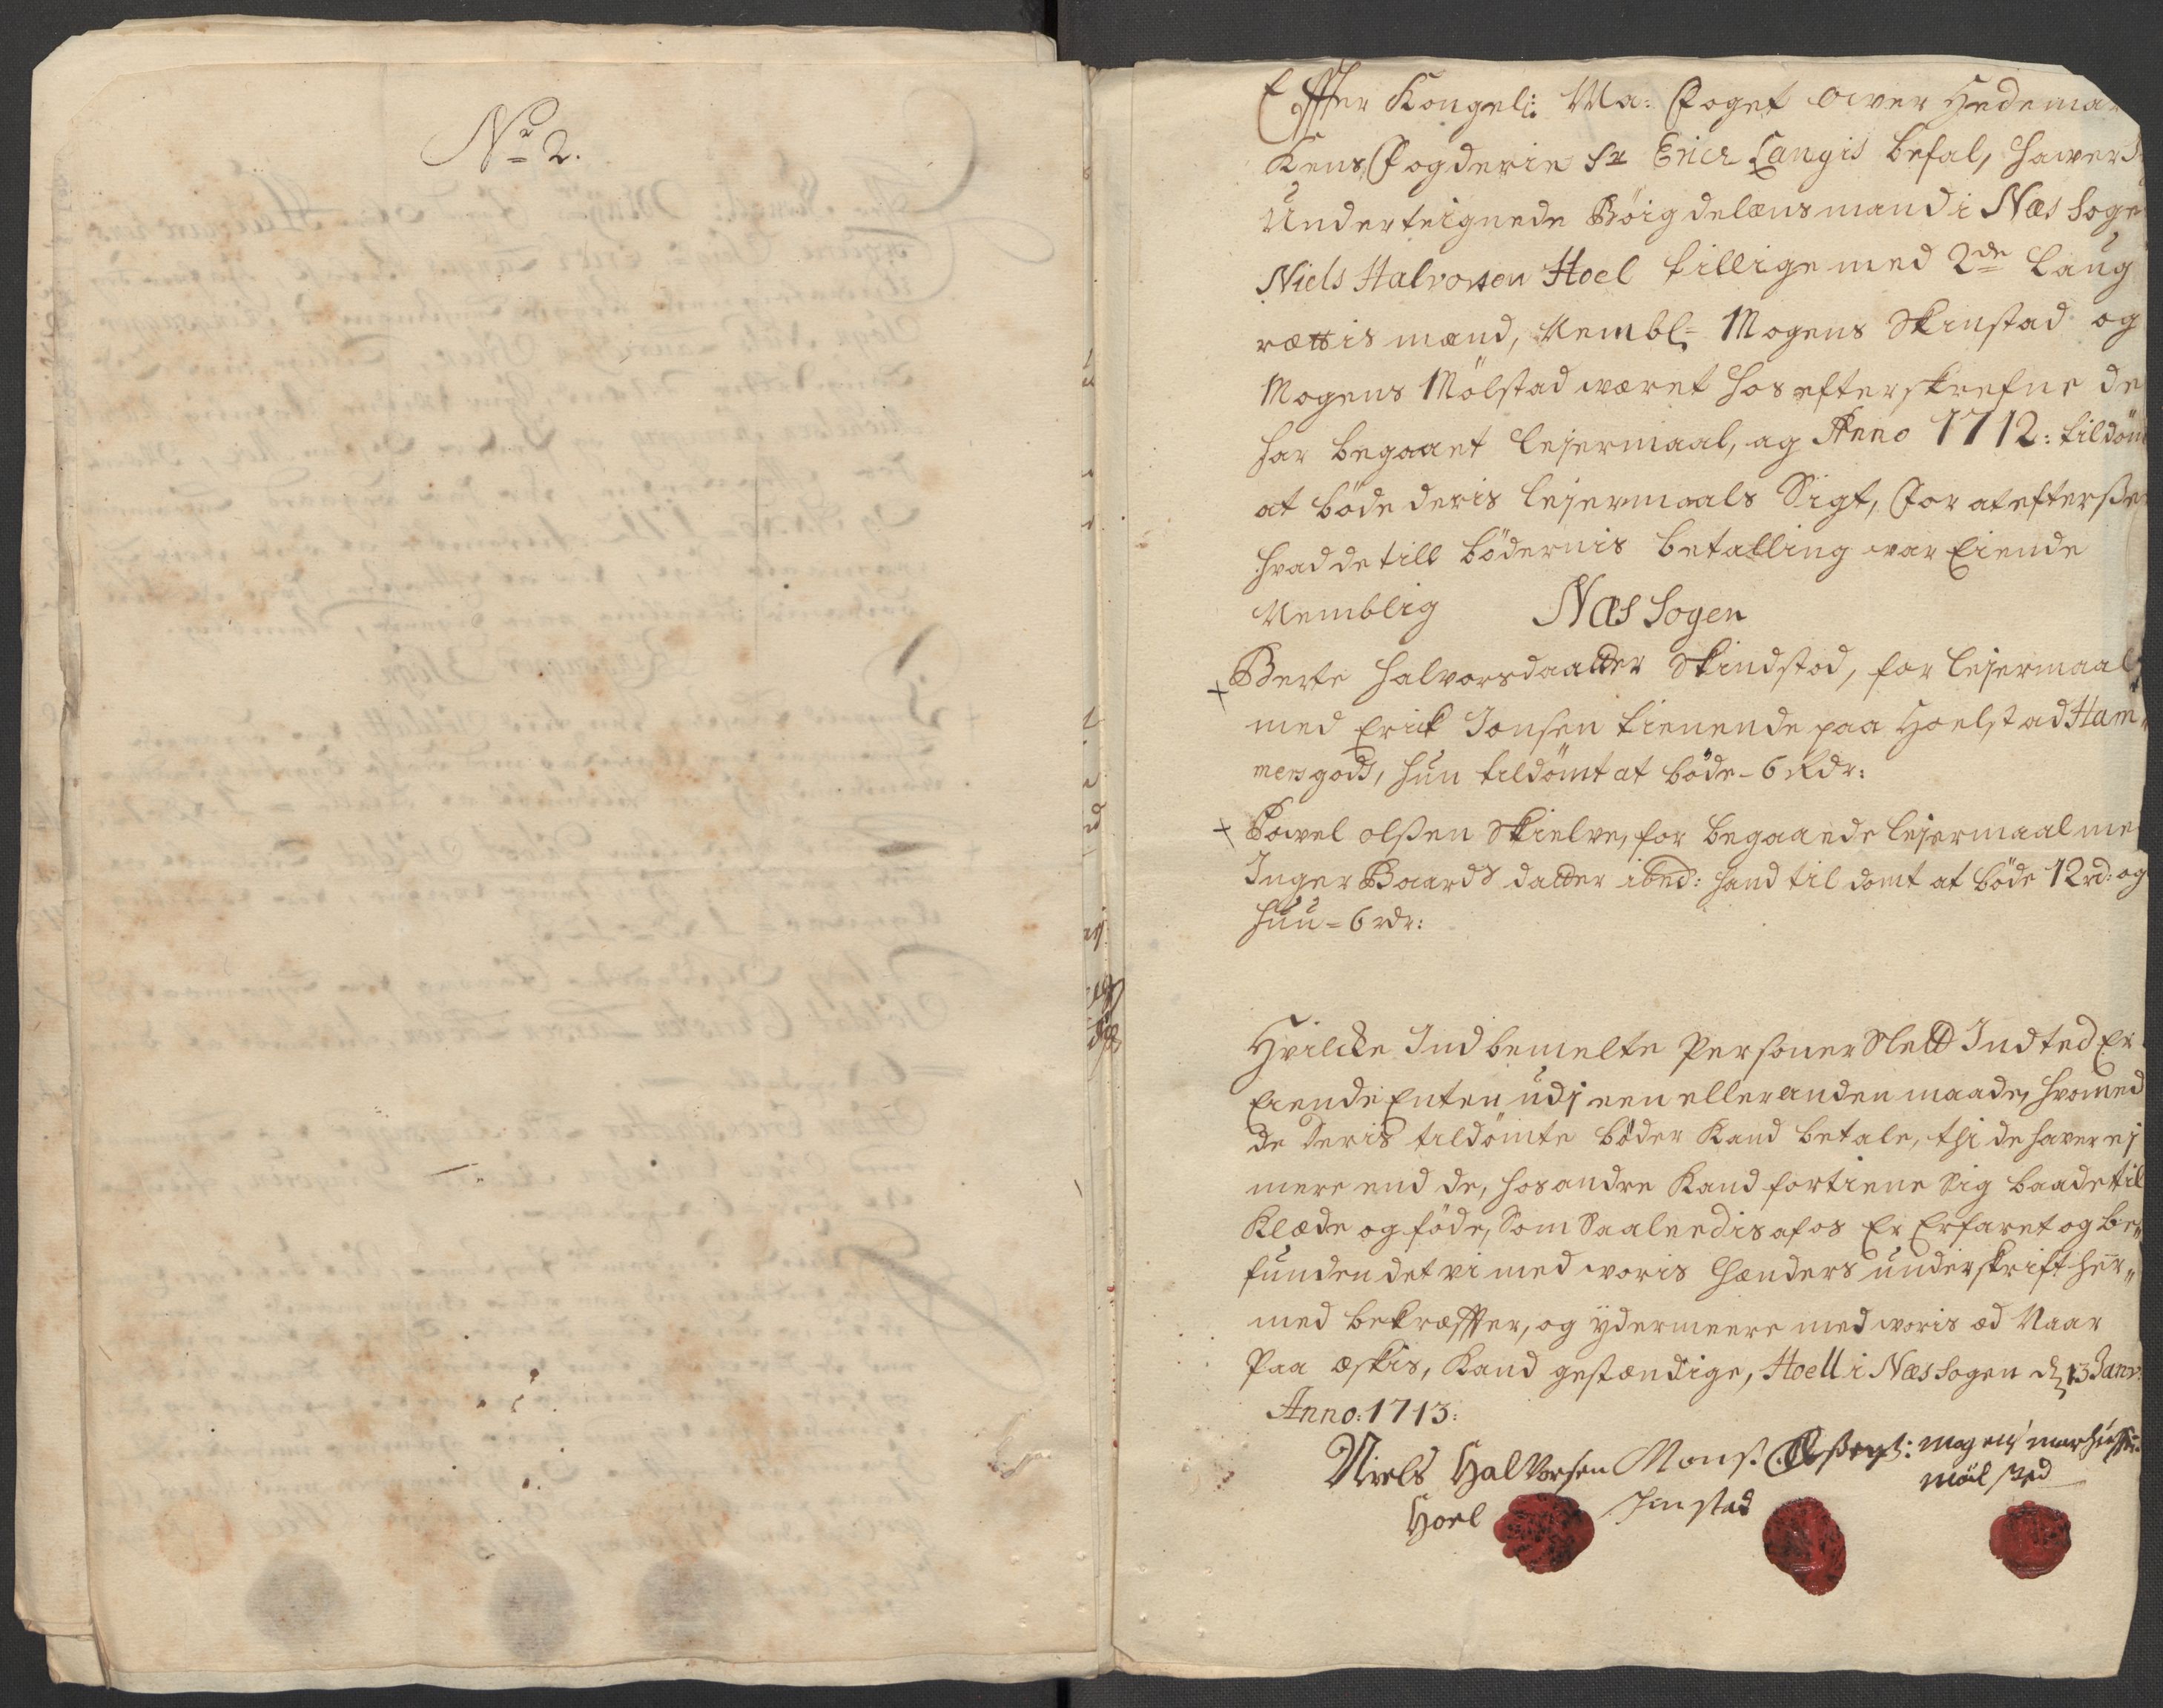 No 2.
Effter Kongel: Ma: Foget Over Hedemar
Kens Fogderie Sr Erick Langis befal, hawer
Underteignede Böigdelænsmand i Næs Sogn
Niels Halvorsen Hoel tillige med 2de Laug
rættis mænd, Nembl= Mogens Skinstad og
Mogens Mölstad wæret hos efterskrefne de
har begaaet lejermaal, og Anno 1712: tildömt
at böde deris lejermaals Sigt, for at efterße
hvad de till bödernis betalling war Eiende
Nemblig Næs Sogen
Berte Halvorsdaatter Skindstad, for lejermaal
med Erick Jonsen tienende paa Hoelstad Ham„
mers gods, hun tildömt at böde - 6 Rdr:
Powel olßen Skielve, for begaaede lejermaal me
Inger Baards datter ibed: hand til dömt at böde 12 rd: og
huu = 6 rdr:
Hvilcke Ind bemelte Personer Slett Indted Er
Eiende Enten udj een eller anden maade, hvomed
de deris tildömte böder Kand betale, thi de haver ej
mere end de, hos andre Kand fortiene Sig baade til
Klæde og föde, Som Saaledis af os Er Erfaret og be„
funden det vi med woris Hænders underskrift her„
med bekræffter, og ÿdermeere med woris æd Naar
Paa æskis, Kand gestændige, Hoell i Næs Sogen d 13 Janr:
Anno: 1713:
Niels Halvorsen Monß mogens
Hoel Sinstad mölstad